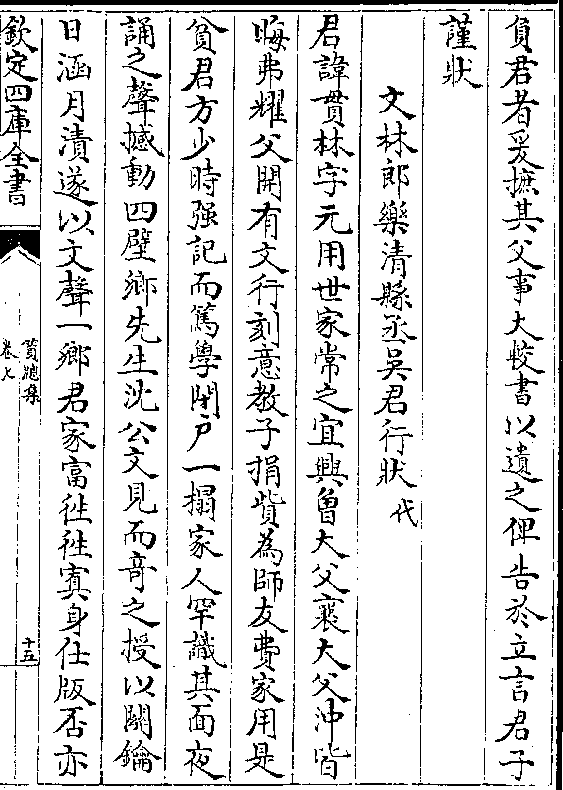 負君者爰摭其父事大較書以遺之俾告於立言君子
謹狀
文林郎樂清縣丞吳君行狀代
君諱貫林字元用世家常之宜興曾大父襄大父沖皆
晦弗耀父開有文行刻意教子捐貲為師友費家用是
貧君方少時强記而篤學閉户一榻家人罕識其面夜
誦之聲撼動四壁鄉先生沈公文見而竒之授以關鑰
日涵月漬遂以文聲一鄉君家富徃徃寘身仕版否亦
欽定四庫全書
卷七
十五